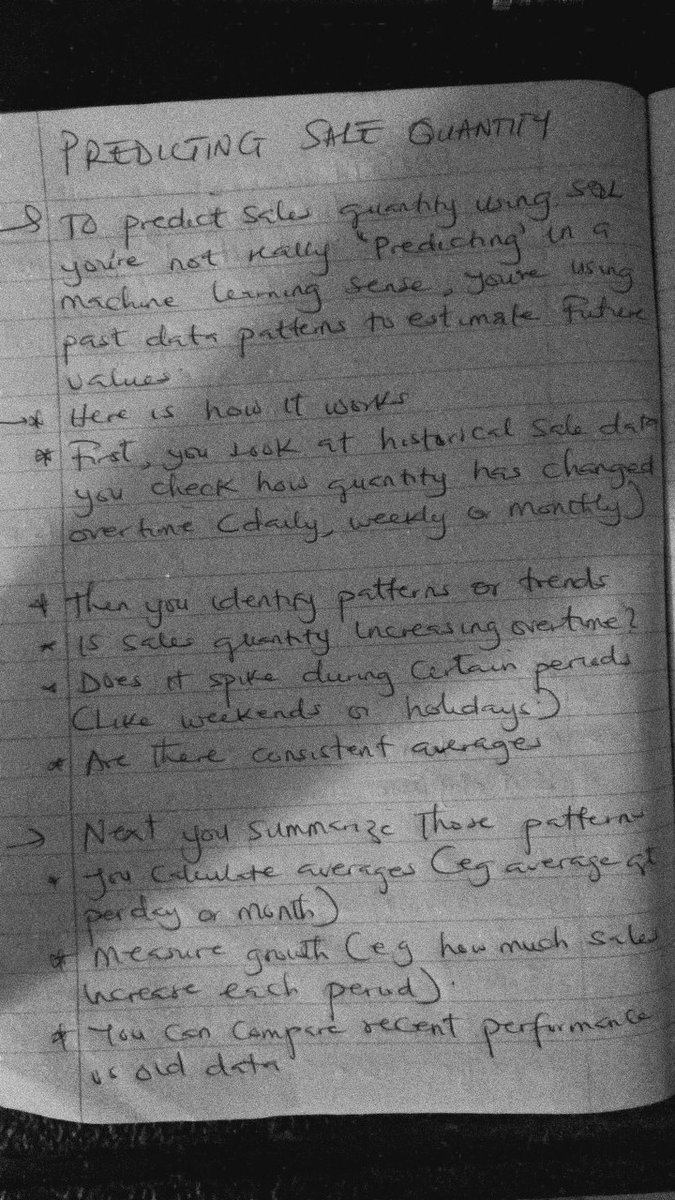 PREDICTING SALE QUANTITY
→ To predict sales quantity using SQL
you're not really "predicting" in a
machine learning sense, you're using
past data patterns to estimate future
values.
→* Here is how it works
* First, you look at historical sale data
you check how quantity has changed
overtime (daily, weekly or monthly)
* Then you identify patterns or trends
* Is sales quantity increasing overtime?
* Does it spike during certain periods
(like weekends or holidays.)
* Are there consistent averages
→ Next you summarize those patterns
* you calculate averages (eg average qt
per day or month)
* measure growth (eg how much sales
increase each period).
* You can compare recent performance
vs old data